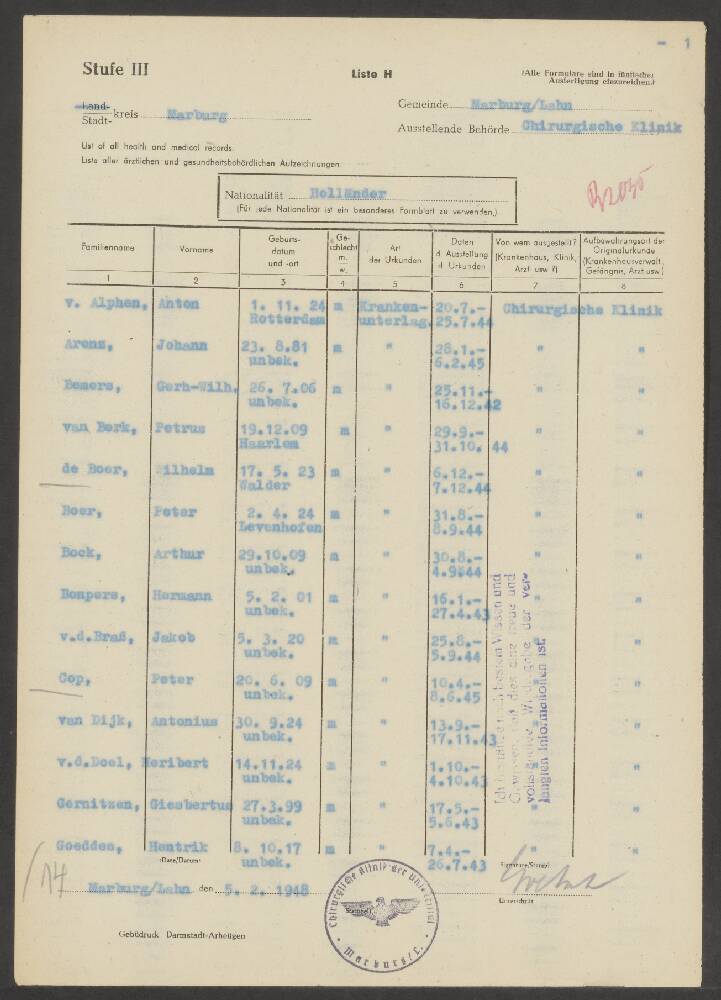 - 1
Stufe III
Liste H
(Alle Formulare sind in fünffacher
Ausfertigung einzureichen.)
Land-
Stadt- kreis Marburg
Gemeinde Marburg/Lahn
Ausstellende Behörde Chirurgische Klinik
List of all health and medical records.
Liste aller ärztlichen und gesundheitsbehördlichen Aufzeichnungen
Nationalität Holländer
(Für jede Nationalität ist ein besonderes Formblatt zu verwenden.)
Familienname | Vorname | Geburts-datum und -ort | Ge-schlecht m. w. | Art der Urkunden | Daten d. Ausstellung d. Urkunden | Von wem ausgestellt? (Krankenhaus, Klinik, Arzt usw.?) | Aufbewahrungsort der Originalurkunde (Krankenhausverwalt., Gefängnis, Arzt usw.)
1 2 3 4 5 6 7 8
v. Alphen, Anton 1. 11. 24 m Kranken- 20.7.- Chirurgische Klinik
Rotterdam unterlag. 25.7.44
Arens, Johann 23. 8.81 m " 28.1.- " "
unbek. 6.2.45
Bemers, Gerh-Wilh. 26. 7.06 m " 25.11.- " "
unbek. 16.12.42
van Berk, Petrus 19.12.09 m " 29.9.- " "
Haarlem 31.10. 44
de Boer, ilhelm 17. 5. 23 m " 6.12.- " "
Walder 7.12.44
Boer, Peter 2. 4. 24 m " 31.8.- " "
Levenhofen 8.9.44
Bock, Arthur 29.10.09 m " 30.8.- " "
unbek. 4.9.44
Bonpers, Hermann 5. 2. 01 m " 16.1.- " "
unbek. 27.4.43
v.d.Braß, Jakob 5. 3. 20 m " 25.8.- " "
unbek. 5.9.44
Cop, Peter 20. 6. 09 m " 10.4.- " "
unbek. 8.6.45
van Dijk, Antonius 30. 9.24 m " 13.9.- " "
unbek. 17.11.43
v.d.Doel, Heribert 14.11.24 m " 1.10.- " "
unbek. 4.10.43
Gernitzen, Giesbertus 27.3.99 m " 17.5.- " "
unbek. 5.6.43
Goedden, Hentrik 8. 10.17 m " 7.4.- " "
unbek. 26.7.43
Ich bestätige nach bestem Wissen und
Gewissen, daß dies eine treue und
vollständige Wiedergabe der ver-
langten Informationen ist.
(Date/Datum)
Marburg/Lahn den 5. 2. 1948
Signature/Stempel
Unterschrift
Chirurgische Klinik der Universität
Marburg/L.
14
Gebüdruck Darmstadt-Arheilgen